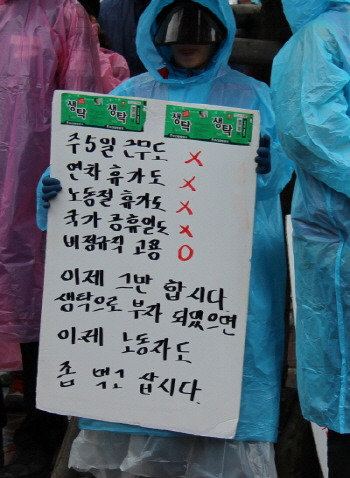 생탁 생탁
주5일 근무도 X
연차 휴가도 X
노동절 휴가도 X
국가 공휴일도 X
비정규직 고용 O
이제 그만 합시다.
생탁으로 부자 되었으면
이제 노동자도
좀 먹고 삽시다.